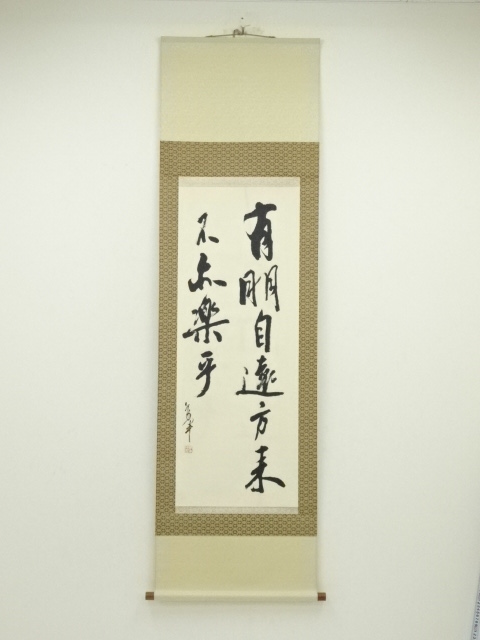 有朋自遠方来
不亦楽乎